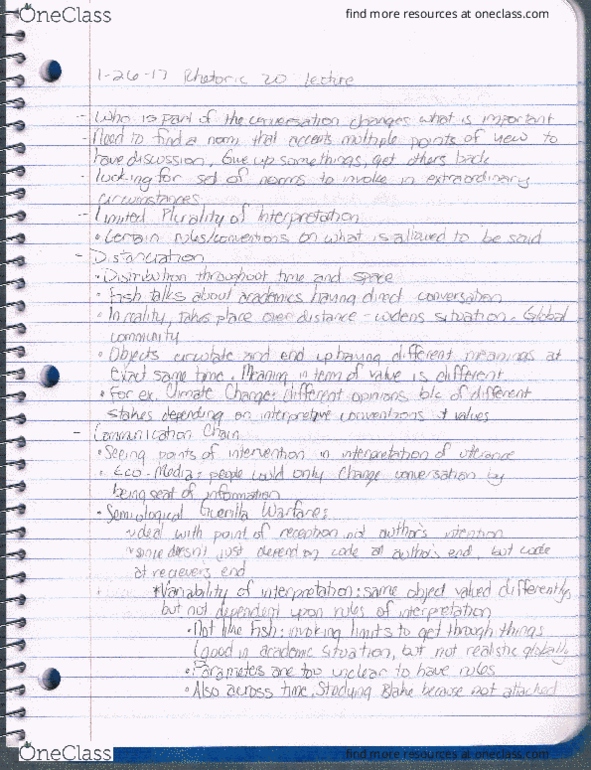 OneClass
find more resources at oneclass.com
1-26-17 Rhetoric 20 lecture
- Who is part of the conversation changes what is important
- Need to find a norm that accepts multiple points of view to
have discussion, Give up somethings, get others back
- looking for set of norms to invoke in extraordinary
circumstances
- Limited Plurality of Interpretation
• Certain rules/conventions on what is allowed to be said
- Distanciation
• Distribution throughout time and space
• Fish talks about academics having direct conversation
• In reality, takes place over distance - widens situation. Global
community
• Objects circulate and end up having different meanings at
exact same time. Meaning in term of value is different
• For ex. Climate Change: different opinions b/c of different
stakes depending on interpretive conventions & values
- Communication Chain
• Seeing points of intervention in interpretation of utterance
• Eco-Media: people could only change conversation by
being seat of information
• Semiological Guerilla Warfare:
deal with point of reception not author's intention
since doesn't just depend on code at author's end, but code
at recievers end
*Variability of interpretation: same object valued differently
but not dependent upon rules of interpretation
• Not like Fish: invoking limits to get through things
(good in academic situation, but not realistic globally
• Parameters are too unclear to have rules
• Also across time, Studying Blake because not attached
OneClass
find more resources at oneclass.com